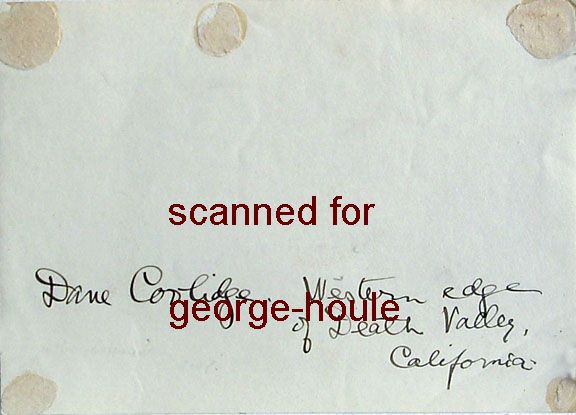 scanned for
Dane Coolidge. Western edge
george-houle
of Death Valley,
California.